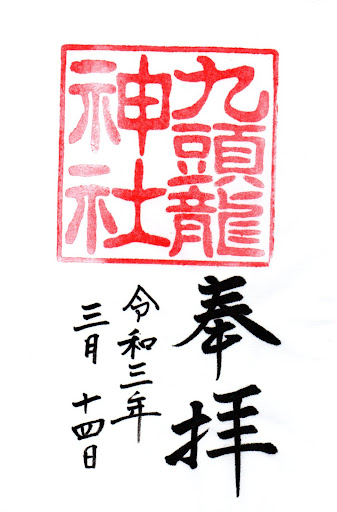 九頭龍
神社
奉拝
令和三年
三月十四日